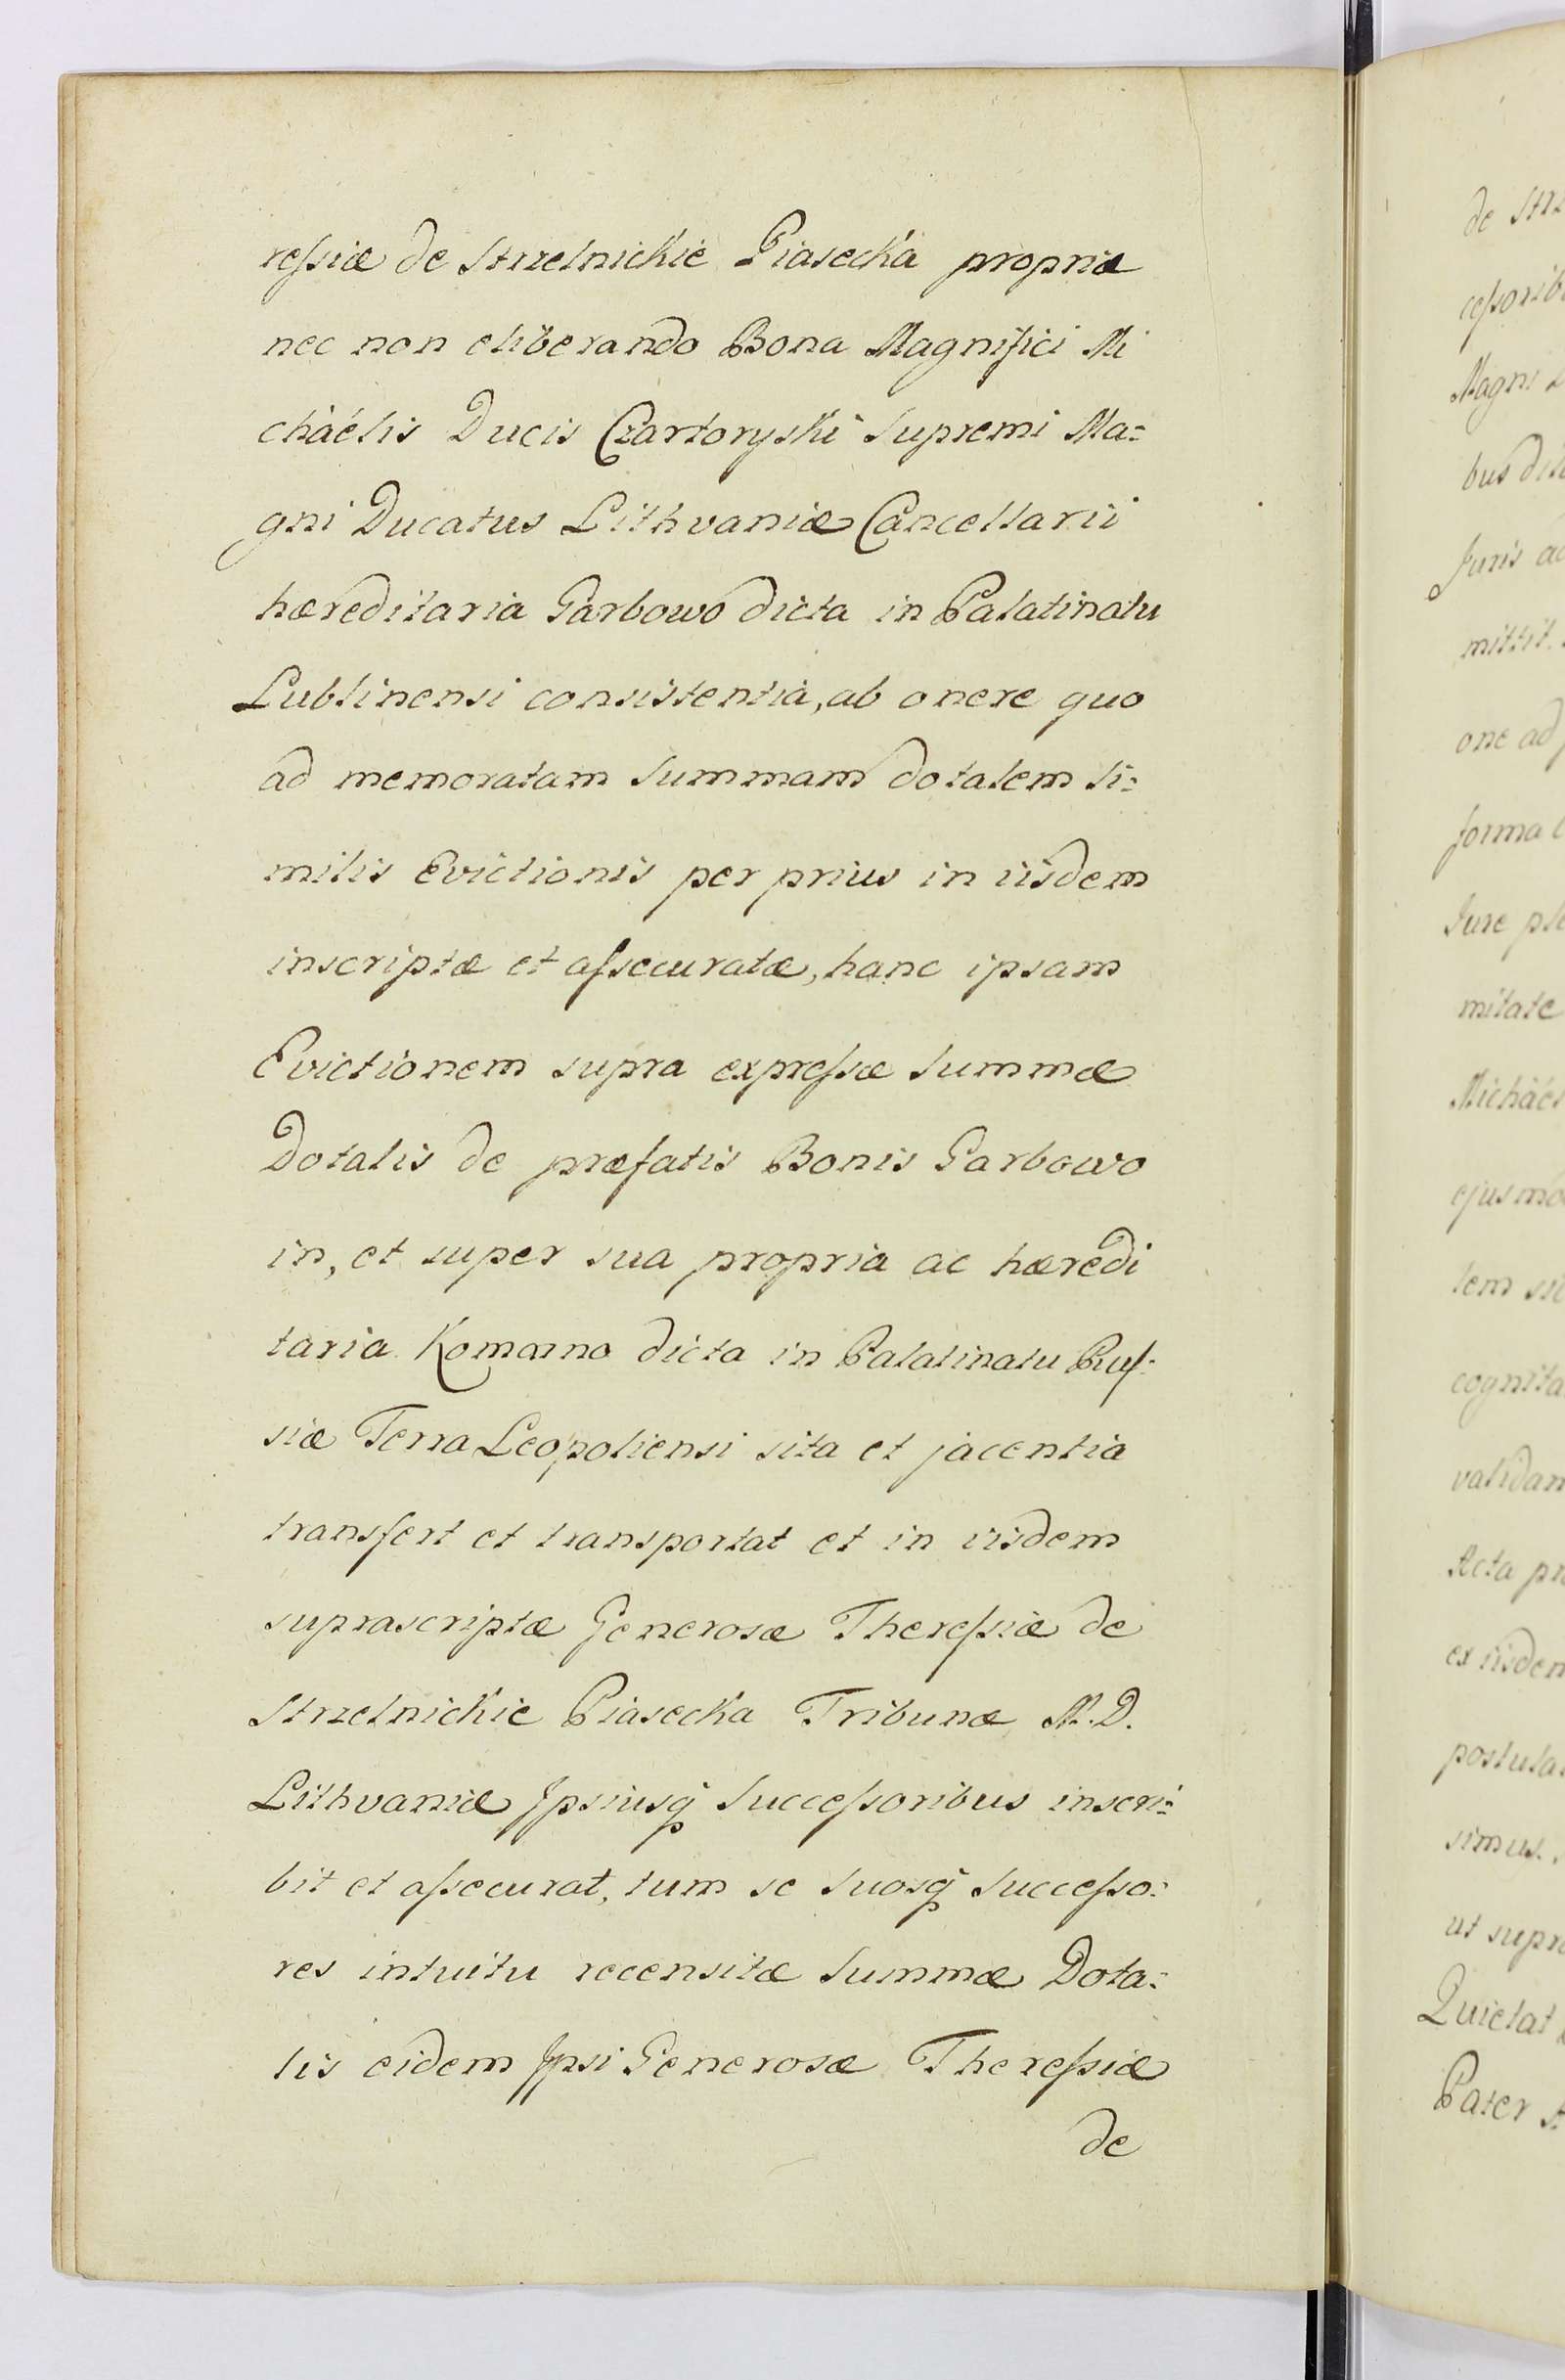 ressiæ de Strzelnickie Piasecka propriæ
nec non eliberando Bona Magnifici Mi
chàélis Ducis Czartoryski Supremi Ma=
gni Ducatus Lithvaniæ Cancellarii
hæreditaria Garbowo dicta in Palatinatu
Lublinensi consistentia, ab onere quo
ad memoratam Summam dotalem si=
milis Evictionis per prius in iisdem
inscriptæ et assecuratæ, hanc ipsam
Evictionem supra expressæ Summæ
Dotalis de præfatis Bonis Garbowo
in, et super sua propria ac hæredi
taria Komarno dicta in Palatinatu Rus=
siæ Terra Leopoliensi sita et jacentia
transfert et transportat et in iisdem
suprascriptæ Generosæ Theressiæ de
Strzelnickie Piasecka Tribunæ M. D.
Lithvaniæ Ipsiusq Successoribus inscri=
bit et assecurat, tum se Suosq Successo=
res intuitu recensitæ Summæ Dota=
lis eidem Ipsi Generosæ Theressiæ
de
de
Magni
Juris
mittit.
one ad
forma
Jure
mitate
cognita
Acta
ex iisdem
simus.
ut supra
Quietat
Pater